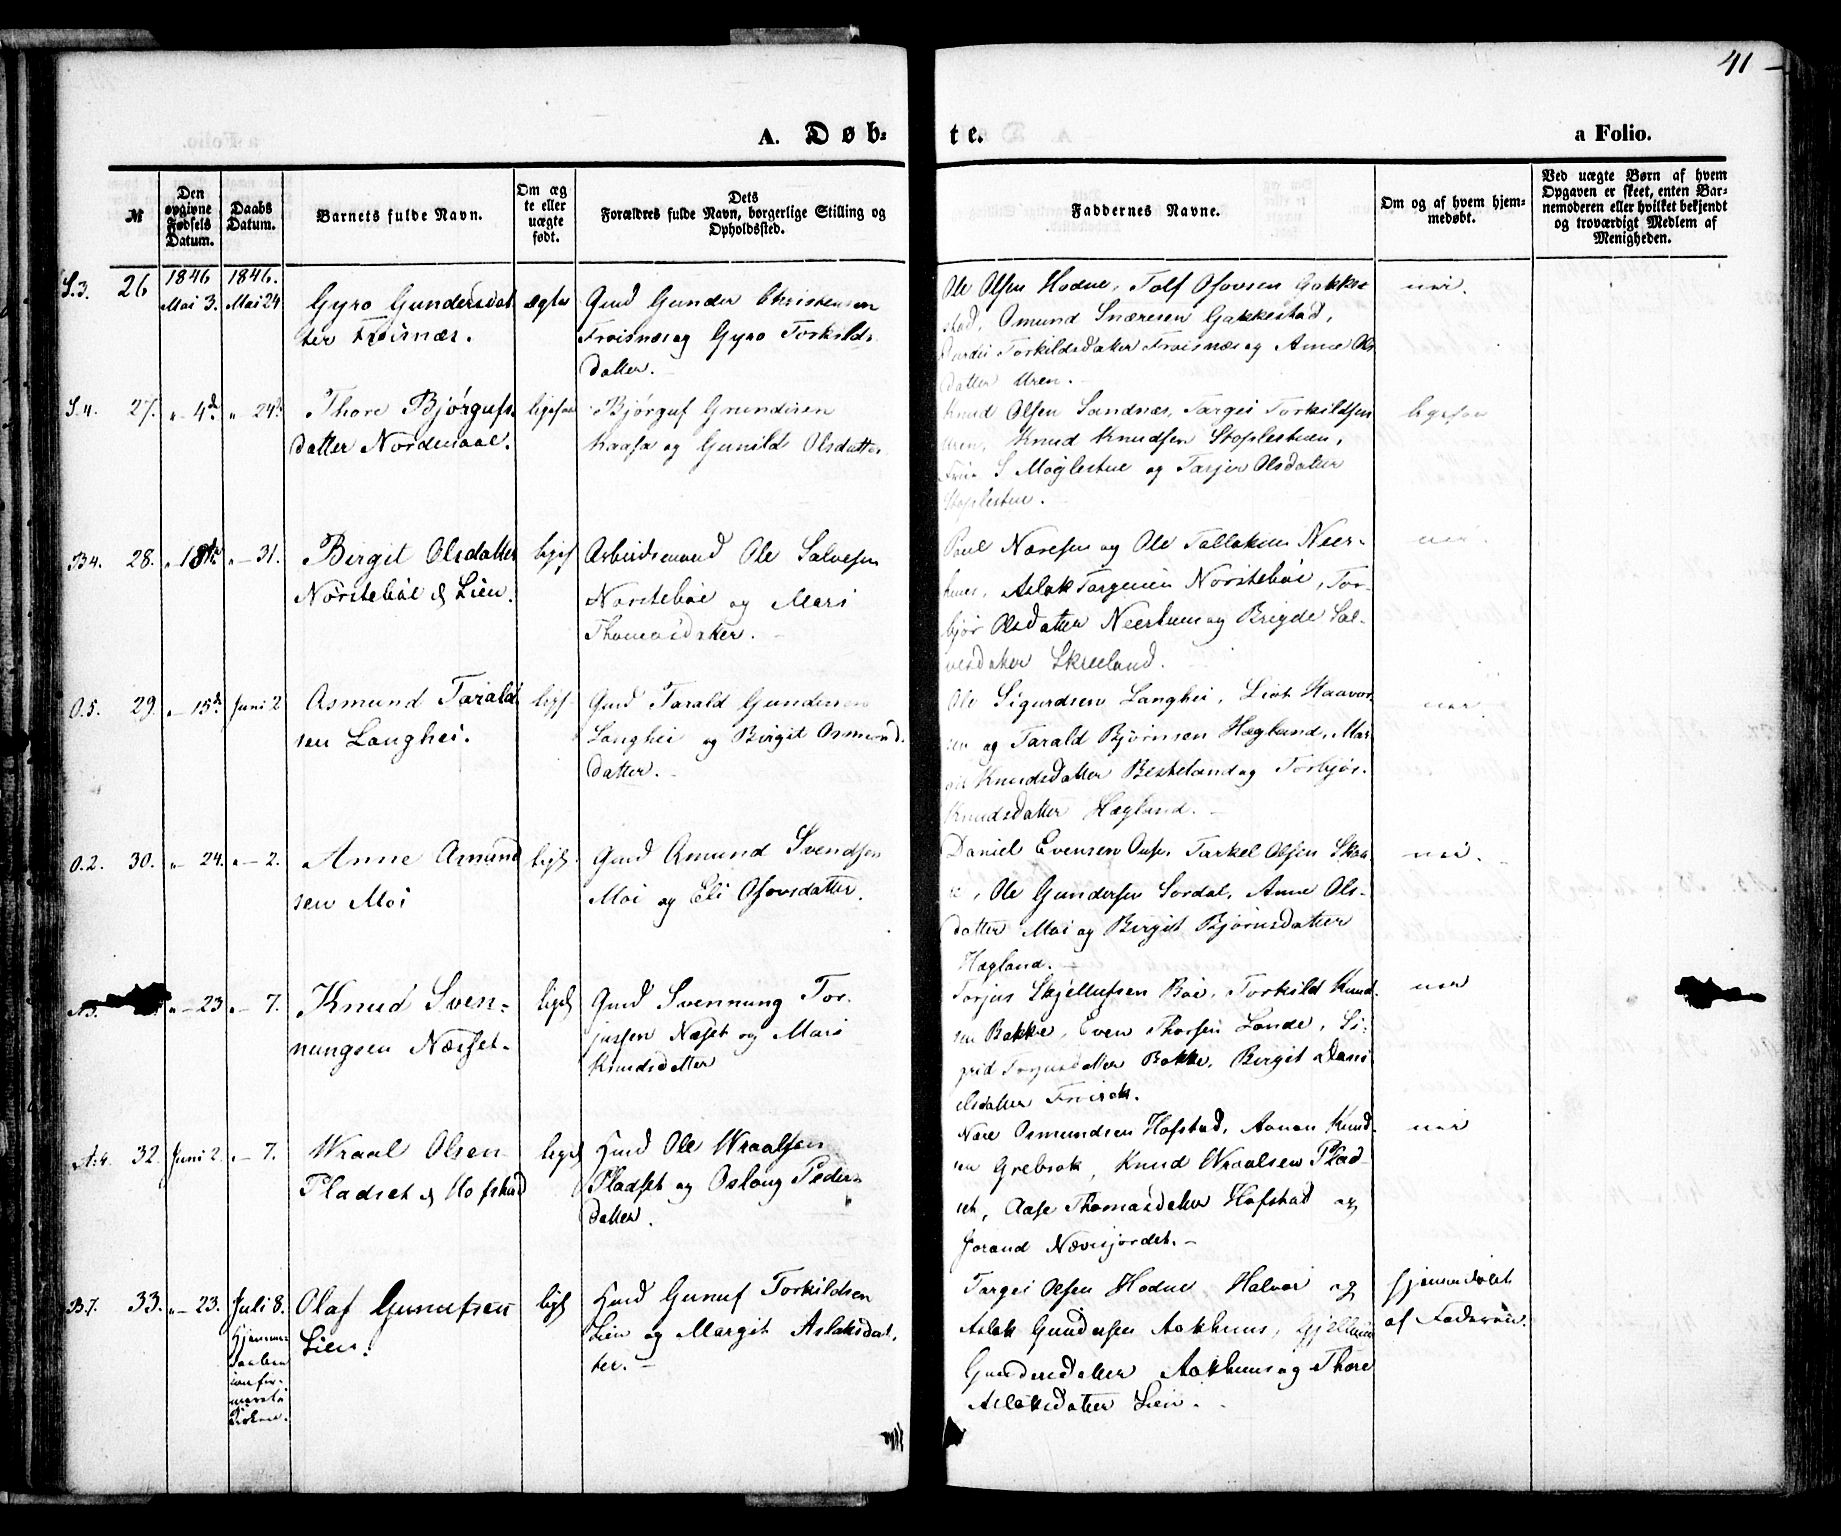 41
A. Døb-
te.
a Folio.
№
Den opgivne Fødsels Datum.
Daabs Datum.
Barnets fulde Navn.
Om ægte eller uægte født.
Dets Forældres fulde Navn, borgerlige Stilling og Opholdssted.
Faddernes Navne.
Om og af hvem hjemmedøbt.
Ved uægte Børn af hvem Opgaven er skeet, enten Barnemoderen eller hvilket bekjendt og troværdigt Medlem af Menigheden.
S.3. 26 1846 Mai 3. 1846. Mai 24
Gyro Gundersdat
ter Frøisnæs.
ægte
Gmd Gunder Christensen
Froisnæs og Gyro Torkilds
datter.
Ole Olsen Hodne, Tolf Osovsen Gakke-
stad, Omund Snæresen Gakkestad,
Torkildsdatter Froisnæs og Anne Ols
datter Uren.
nei.
S.4. 27. " 4de " 24de
Thore Bjørgufs
datter Nordenaae.
ligesaa
Bjørguf Gundersen
Kaasa og Gunild Olsdatter
Knud Olsen Sandnæs, Targei Torkildsen
Uren, Knud Knudsen Stoplestuen,
S Moglestue og Tarjer Olsdatter
Stoplestue.
ligesaa
B4. 28. " 18de " - 31.
Birgit Olsdatter
Nørstebøe & Lien.
liges
Arbeidsmand Ole Salvesen
Norstebøe og Mari
Thomasdatter.
Poul Næresen og Ole Tallaksen Neer-
huus, Aslak Targeisen Norstebøe, Tor-
bjør Olsdatter Neerhuus og Brigde Sal-
vesdatter Skreeland.
nei.
O.5. 29. " - 15de Juni 2
Asmund Tarald
sen Langhei.
ligs.
Gmd Tarald Gundersen
Langhei og Birgit Osmund
datter.
Ole Sigurdsen Langhei, Liot Haavor
sen og Tarald Bjørnsen Hægland, Mar
Knudsdatter Besteland og Torbjør
Knudsdatter Hægland.
nei
O.2. 30. " - 24. " - 2.
Anne Amund
sen Moi
ligs.
Gmd Amund Svendsen
Moi og Eli Osovsdatter.
Daniel Evensen Ouse, Tarkel Olsen Skaa
e, Ole Gundersen Sordal, Anne Ols-
datter Moi og Birgit Bjørnsdatter
Hægland.
nei.
N3. " - 23 " - 7.
Knud Sven-
nungsen Næsset.
ligs
Gmd Svennung Tor-
jussen Næset og Mari
Knudsdatter
Torjus Skjellufsen Bøe, Torkild Knud
sen Bakke, Even Thorsen Lande, Si-
grid Torjusdatter Bakke, Birgit Dani
elsdatter Frisok.
nei
N.4. 32. Juni 2. " - 7.
Wraal Olsen
Pladset & Hofstad
ligs
Hmd Ole Wraalsen
Pladset og Oslaug Peders
datter.
Nære Osmundsen Hofstad, Aanon Knud
sen Grebrok, Knud Wraalsen Plad-
set, Aase Thomasdatter Hofstad og
Jorand Nævesjordet. -
nei
B.7. 33. " - 23. Juli 8.
Olaf Gunufsen
Lien.
ligs
Hmd Gunuf Torkildsen
Lien og Margit Aslaksdat
ter. -
Targei Olsen Hodne Halvor og
Aslak Gundersen Aakhuus, Gjellaug
Gundersdatter Aakhuus og Thore
Aslaksdatter Lien.
hjemmedøbt
af Faderen.
Hjemme-
daaben
confir-
meret i
Kirken.